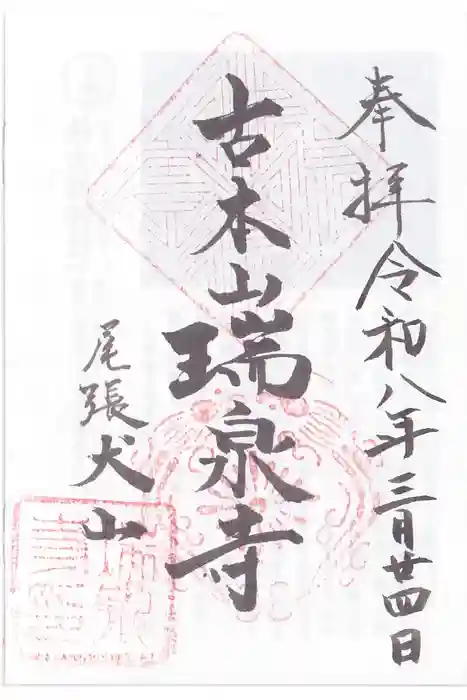 奉拝令和八年三月廿四日
古本山瑞泉寺
尾張犬山